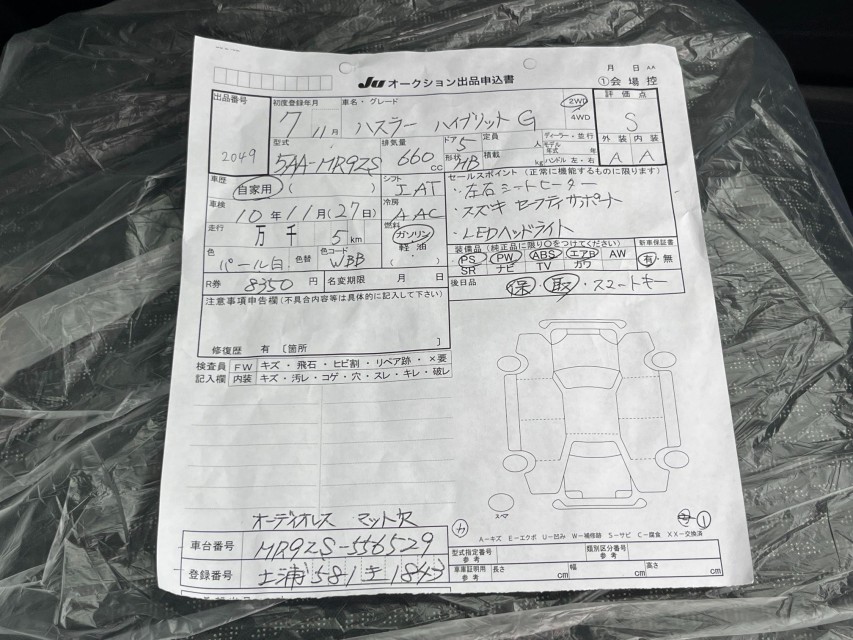 月 日 AA
JU オークション出品申込書 ①会場控
出品番号 2049
初度登録年月 7 11月
車名・グレード ハスラー ハイブリット G
2WD 4WD
評価点 S
外装 内装
A A
型式 5AA-MR92S
排気量 660 cc
ドア 5
形状 HB
定員 人
積載 kg
ディーラー・並行
モデル年式 年
ハンドル 左・右
車歴 自家用 ( )
シフト IAT
セールスポイント (正常に機能するものに限ります)
・左右シートヒーター
・スズキ セーフティサポート
・LEDヘッドライト
車検 10年11月(27日)
冷房 AAC
走行 万 千 5 km
燃料 ガソリン 軽油 ( )
色 パール白 色替
色コード WBB
装備品 (純正品に限り○をつけてください) 新車保証書
PS PW ABS エアB AW 有・無
SR ナビ TV カワ
R券 8350 円 名変期限 月 日
後日品 保・取・スマートキー
注意事項申告欄 (不具合内容等は具体的に記入して下さい)
修復歴 有 〔箇所 〕
検査員 FW キズ・飛石・ヒビ割・リペア跡・×要
記入欄 内装 キズ・汚レ・コゲ・穴・スレ・キレ・破レ
スペア
オーディオレス マット欠
カ
A−キズ E−エクボ U−凹み W−補修跡 S−サビ C−腐食 XX−交換済
車台番号 MR92S-556529
型式指定番号 参考 類別区分番号 参考
登録番号 土浦 581 き 1843
車庫証明用 参考 長さ cm 幅 cm 高さ cm